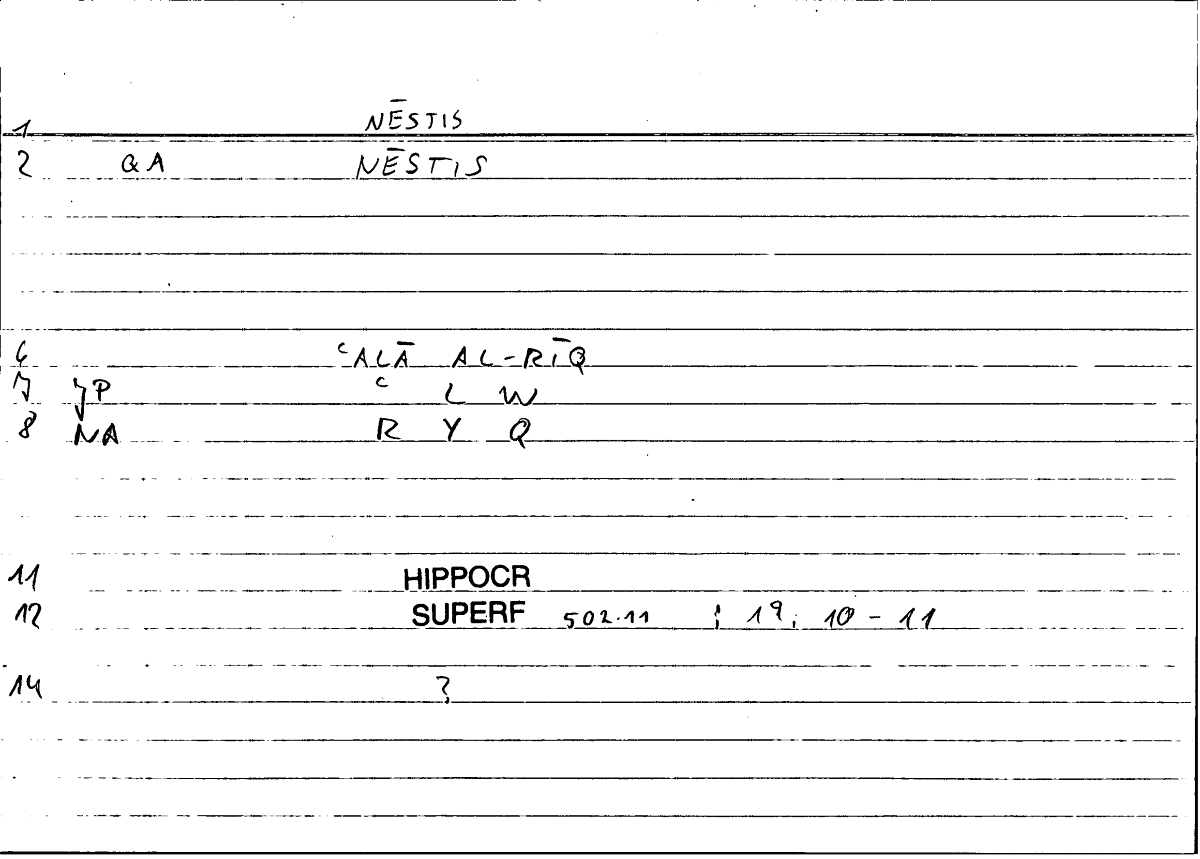 1 NĒSTIS
2 QA NĒSTIS
6 ʿALĀ AL-RĪQ
7 JP ʿ L W
8 NA R Y Q
11 HIPPOCR
12 SUPERF 502.11 ; 19; 10 - 11
14 ?